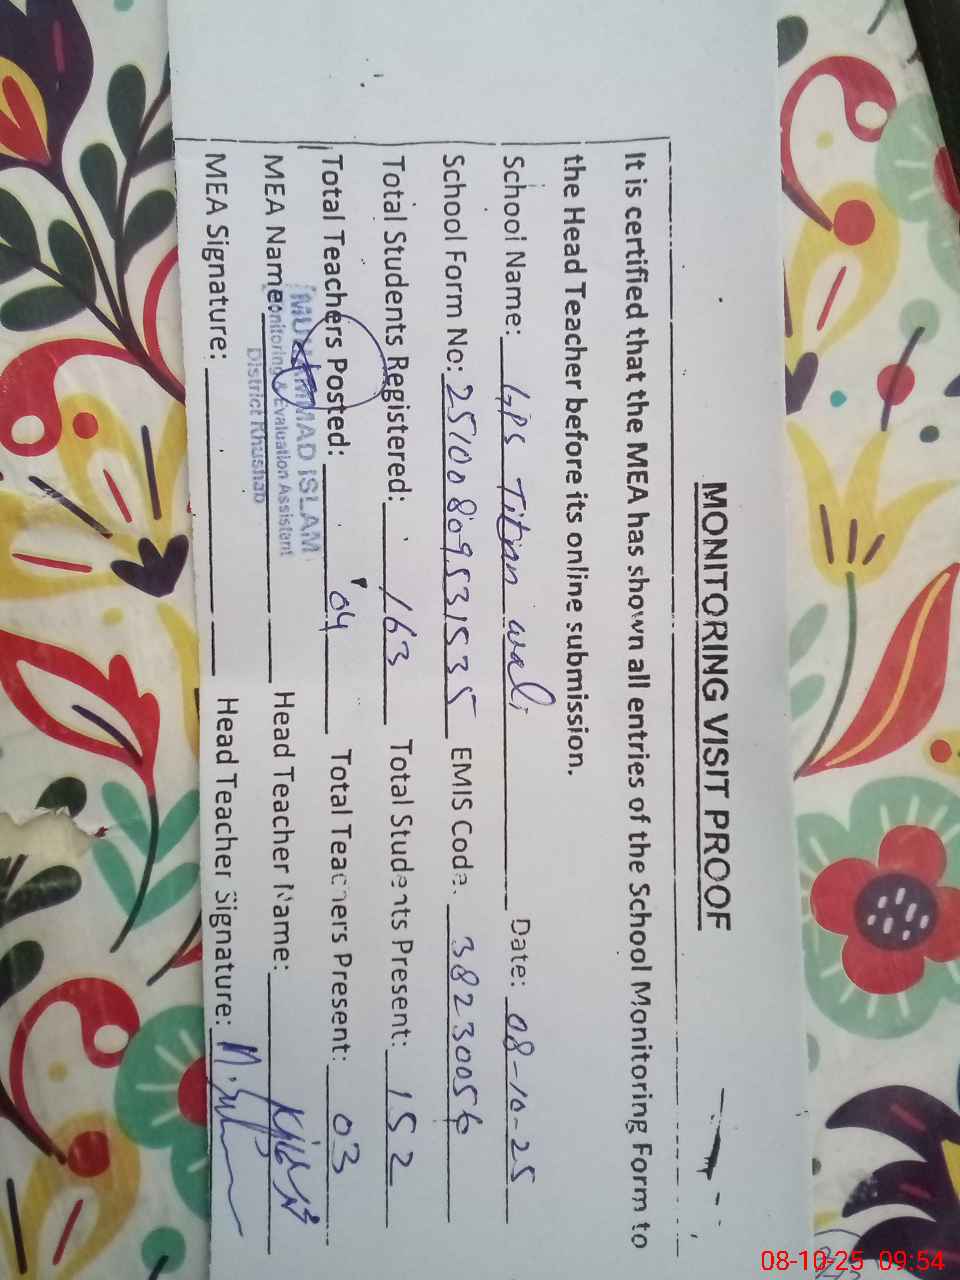 MONITORING VISIT PROOF
It is certified that the MEA has shown all entries of the School Monitoring Form to
the Head Teacher before its online submission.
School Name: GPS Titri wali Date: 08-10-25
School Form No: 25100809531535 EMIS Code. 38230056
Total Students Registered: 163 Total Students Present: 152
Total Teachers Posted: 04 Total Teachers Present: 03
MUHAMMAD ISLAM
MEA Name: Head Teacher Name:
Monitoring & Evaluation Assistant
District Khushab
MEA Signature: Head Teacher Signature:
08-10-25 09:54